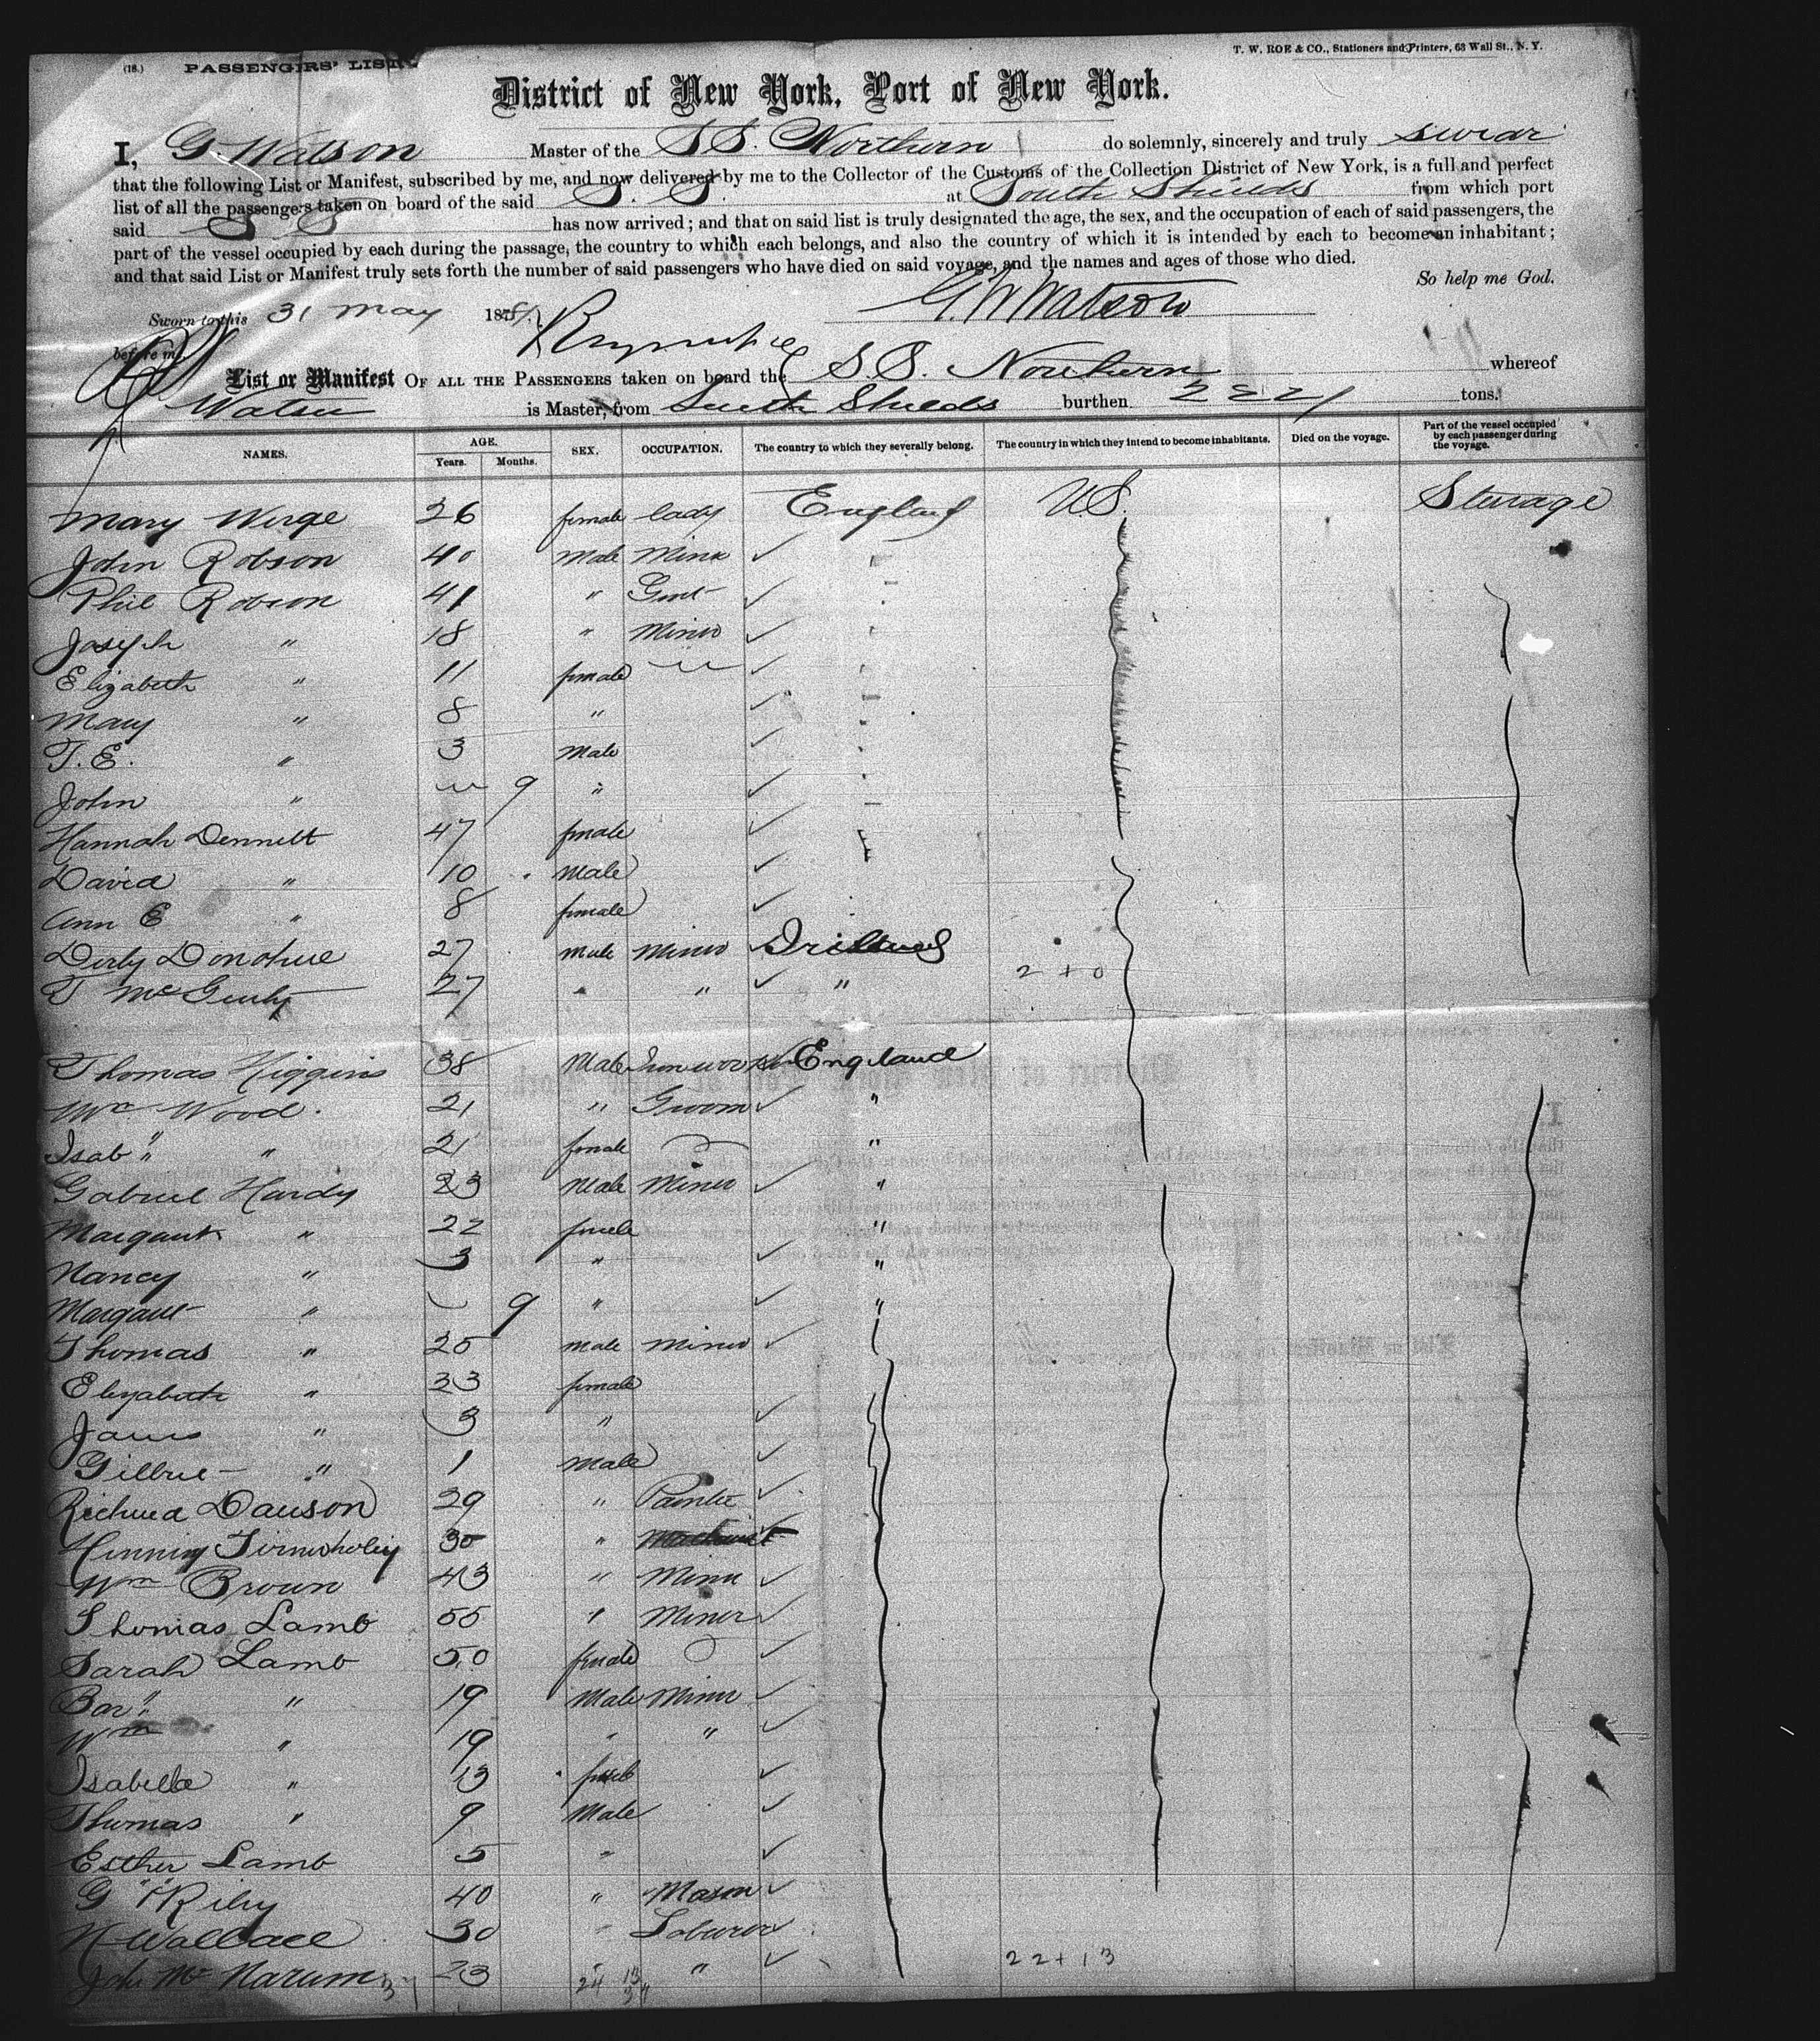 T. W. ROE & CO., Stationers and Printers, 63 Wall St., N. Y.
(18.) PASSENGERS' LIST.
District of New York, Port of New York.
I, G Watson Master of the SS. Northern do solemnly, sincerely and truly swear
that the following List or Manifest, subscribed by me, and now delivered by me to the Collector of the Customs of the Collection District of New York, is a full and perfect
list of all the passengers taken on board of the said S. S. at South Shields from which port
said S S has now arrived; and that on said list is truly designated the age, the sex, and the occupation of each of said passengers, the
part of the vessel occupied by each during the passage, the country to which each belongs, and also the country of which it is intended by each to become an inhabitant;
and that said List or Manifest truly sets forth the number of said passengers who have died on said voyage, and the names and ages of those who died.
So help me God.
Sworn to this 31 May 18 G. W Watson
before me,
List or Manifest OF ALL THE PASSENGERS taken on board the S.S. Northern whereof
Watson is Master, from South Shields burthen 2221 tons.
NAMES. AGE. Years. Months. SEX. OCCUPATION. The country to which they severally belong. The country in which they intend to become inhabitants. Died on the voyage. Part of the vessel occupied by each passenger during the voyage.
Mary 26 female lady England U.S. Steerage
John Robson 40 Male Miner
Phil Robson 41 " Gent
Joseph " 18 " Miner
Elizabeth " 11 female
Mary " 8 "
T. E. " 3 Male
John " 9 "
Hannah Dennitt 47 female
David " 10 Male
Ann E " 8 female
Donohue 27 Male Miner Ireland
T 27 " " "
2 + 0
Thomas Higgins 38 Male Ironworker England
Wm Wood. 21 " Groom "
Isab " " 21 female "
Gabriel Hardy 23 Male Miner "
Margaret " 22 female "
Nancy " 3 " "
Margaret " 9 " "
Thomas " 25 Male Miner
Elizabeth " 23 female
James " 3 "
" 1 Male
Richard Dawson 29 " Painter
30 "
Wm Brown 43 " Miner
Thomas Lamb 55 " Miner
Sarah Lamb 50 female
Bar " " 19 Male Miner
Wm " 19 " "
Isabella " 13 female
Thomas " 9 Male
Esther Lamb 5 "
G Riley 40 " Mason
N Wallace 30 " Laborer
23 "
22 + 13